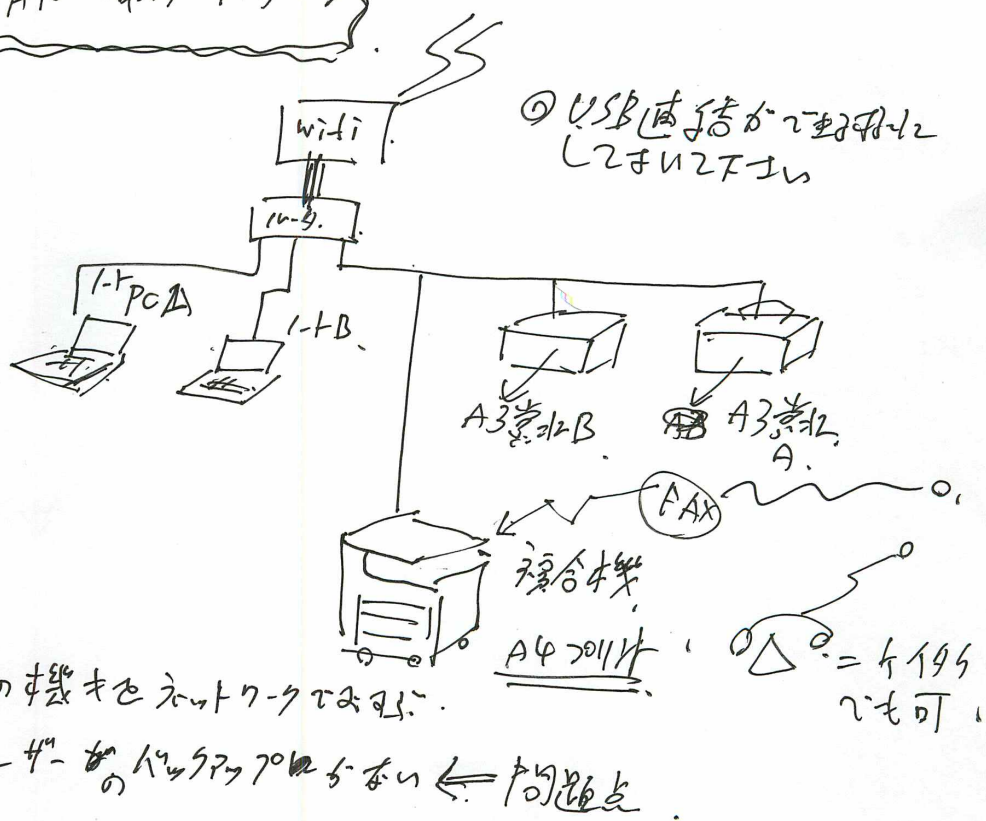 wifi
ルータ.
◎ USB直結ができる様に
しておいて下さい
ノートPCA
ノートB、
A3黒水B.
A3黒水
A.
FAX
複合機
A4プリント
=ケイタイ
でも可。
の機キをネットワークでむすぶ.
ーザーのバックアップがない ← 問題点.